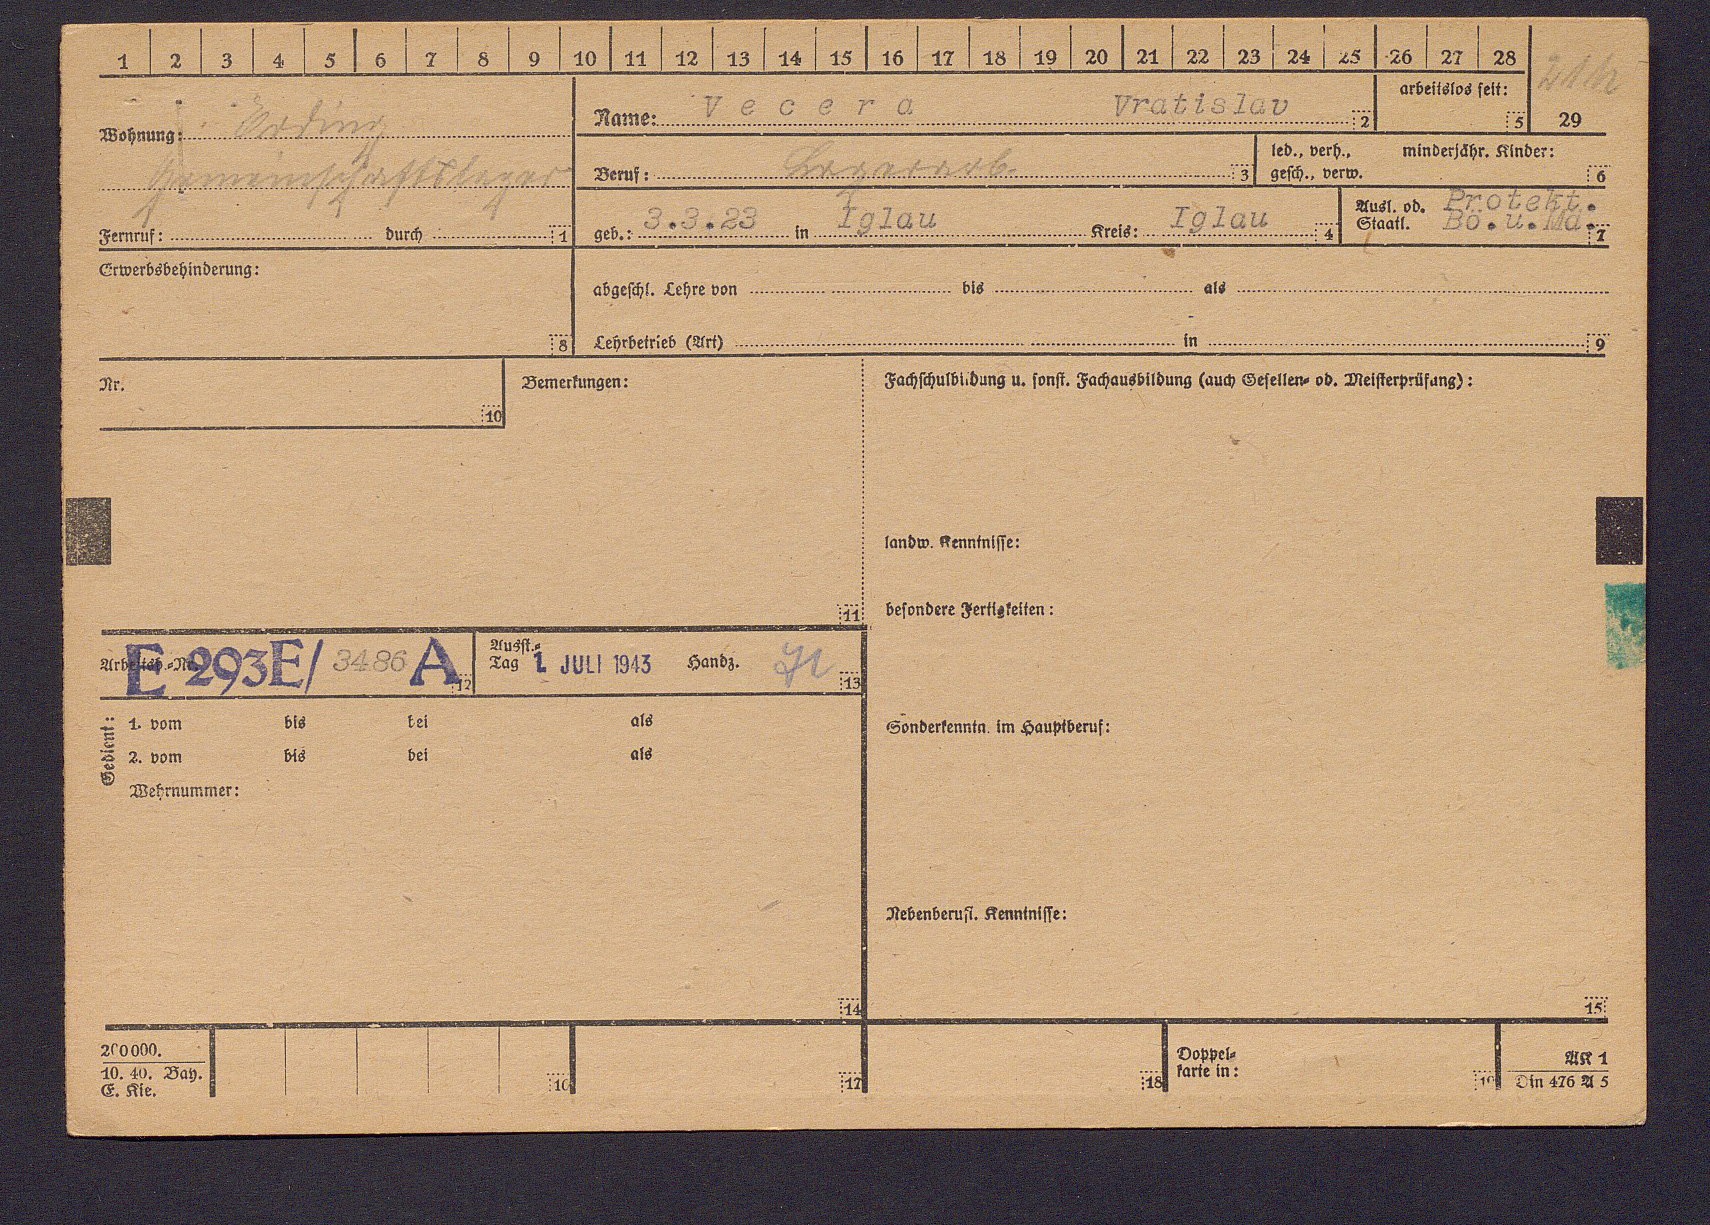 1 2 3 4 5 6 7 8 9 10 11 12 13 14 15 16 17 18 19 20 21 22 23 24 25 26 27 28
29
Wohnung: Erding
Gemeinschaftslager
Fernruf: durch 1
Name: Vecera Vratislav 2
arbeitslos seit: 5
Beruf: Lagerarb. 3
led., verh., minderjähr. Kinder:
gesch., verw. 6
geb.: 3.3.23 in Iglau Kreis: Iglau 4
Ausl. od. Protekt.
Staatl. Bö.u.Mä. 7
Erwerbsbehinderung:
8
abgeschl. Lehre von bis als
Lehrbetrieb (Art) in 9
Nr.
10
Bemerkungen:
11
Fachschulbildung u. sonst. Fachausbildung (auch Gesellen- od. Meisterprüfung):
landw. Kenntnisse:
besondere Fertigkeiten:
Sonderkenntn. im Hauptberuf:
Nebenberufl. Kenntnisse:
15
Arbeitsb.-Nr. E 293E/ 3486 A 12
Ausst.-
Tag 1. JULI 1943 Handz. 13
Gedient:
1. vom bis bei als
2. vom bis bei als
Wehrnummer:
14
200000.
10. 40. Bay.
E. Kie.
16 17 18
Doppel-
karte in: 19
AK 1
Din 476 A 5